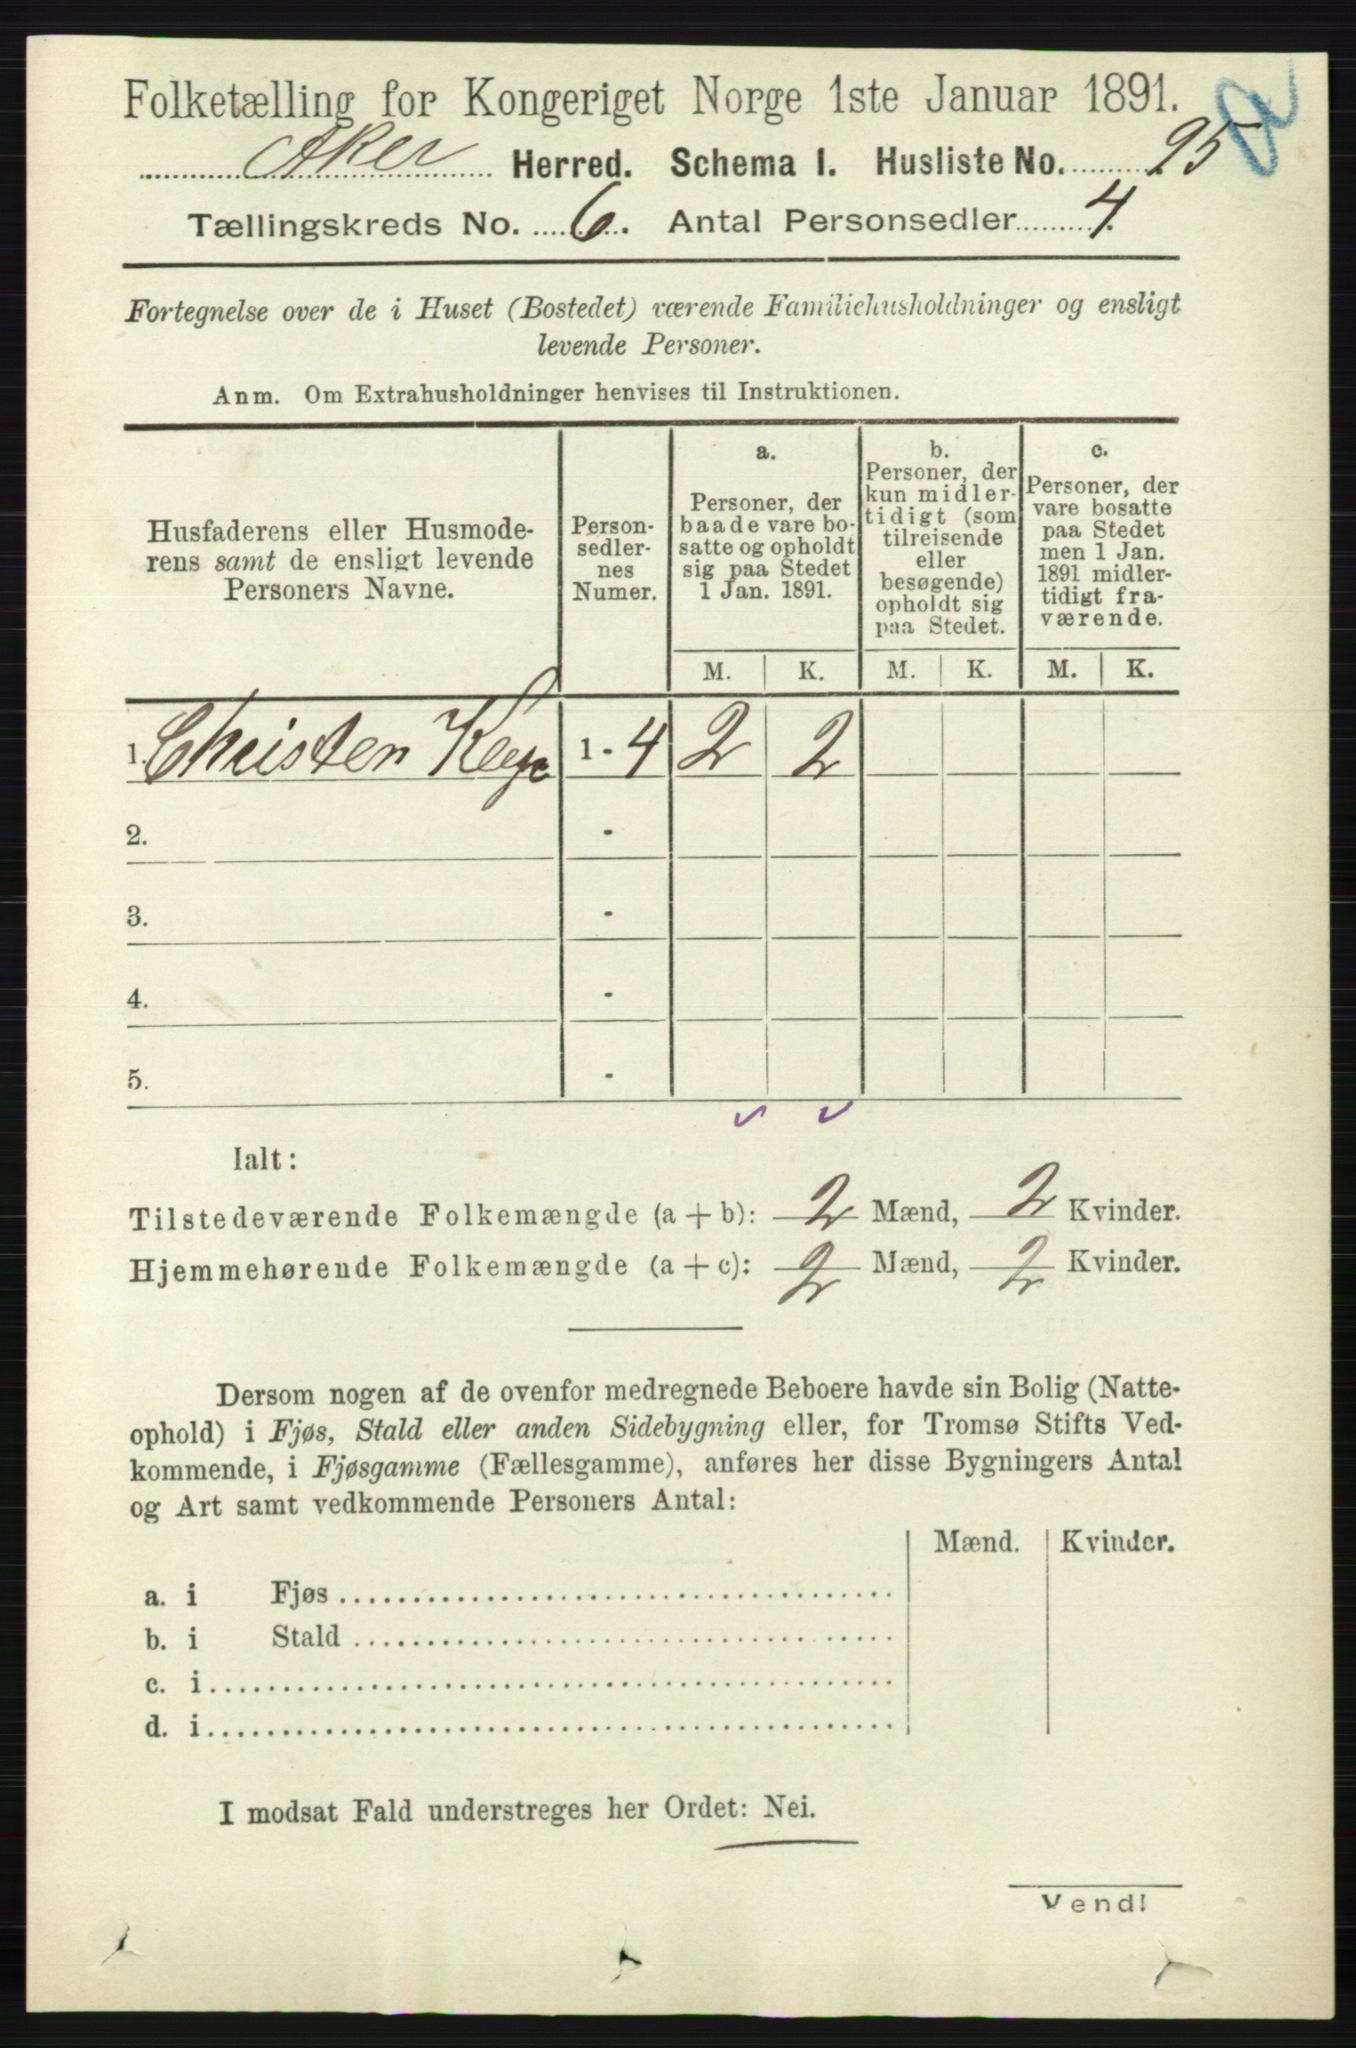 Folketælling for Kongeriget Norge 1ste Januar 1891.
Aker Herred. Schema 1. Husliste No. 95
Tællingskreds No. 6. Antal Personsedler 4.
Fortegnelse over de i Huset (Bostedet) værende Familiehusholdninger og ensligt
levende Personer.
Anm. Om Extrahusholdninger henvises til Instruktionen.
Husfaderens eller Husmode-
rens samt de ensligt levende
Personers Navne.
Person-
sedler-
nes
Numer.
a.
Personer, der
baade vare bo-
satte og opholdt
sig paa Stedet
1 Jan. 1891.
b.
Personer, der
kun midler-
tidigt (som
tilreisende
eller
besøgende)
opholdt sig
paa Stedet.
c.
Personer, der
vare bosatte
paa Stedet
men 1 Jan.
1891 midler-
tidigt fra-
værende.
M. K. M. K. M. K.
1. Christen 1 - 4 2 2
2. -
3. -
4. -
5. -
Ialt:
Tilstedeværende Folkemængde (a + b): 2 Mænd, 2 Kvinder.
Hjemmehørende Folkemængde (a + c): 2 Mænd, 2 Kvinder.
Dersom nogen af de ovenfor medregnede Beboere havde sin Bolig (Natte-
ophold) i Fjøs, Stald eller anden Sidebygning eller, for Tromsø Stifts Ved-
kommende, i Fjøsgamme (Fællesgamme), anføres her disse Bygningers Antal
og Art samt vedkommende Personers Antal:
Mænd. Kvinder.
a. i Fjøs
b. i Stald
c. i
d. i
I modsat Fald understreges her Ordet: Nei.
Vend!